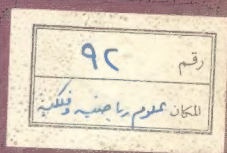 رقم ٩٢
المكان علوم رياضية وفلكية